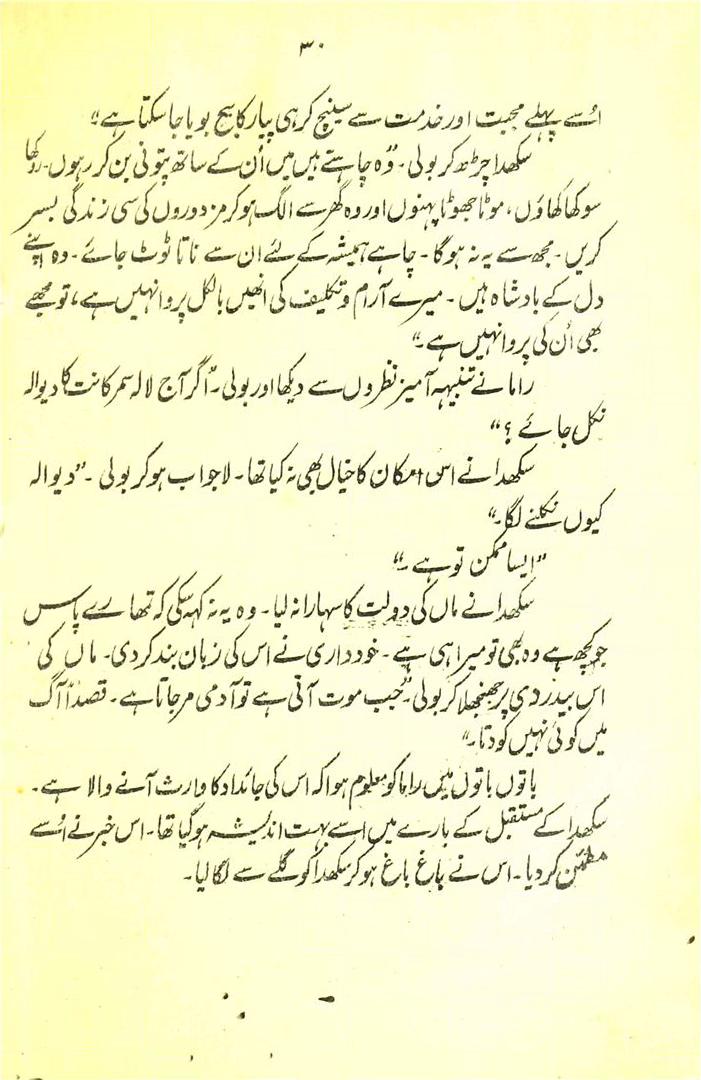 ۳۰
اُسے پہلے محبت اور خدمت سے سینچ کر ہی پیار کا بیج بویا جا سکتا ہے"
سکھدا چڑھ کر بولی۔ "وہ چاہتے ہیں میں اُن کے ساتھ پتونی بن کر رہوں۔ روکھا
سوکھا کھاؤں، موٹا جھوٹا پہنوں اور وہ گھر سے الگ ہو کر مزدوروں کی سی زندگی بسر
کریں۔ مجھ سے یہ نہ ہوگا۔ چاہے ہمیشہ کے لئے ان سے ناتا ٹوٹ جائے۔ وہ اپنے
دل کے بادشاہ ہیں۔ میرے آرام و تکلیف کی انھیں بالکل پروا نہیں ہے، تو مجھے
بھی اُن کی پروا نہیں ہے۔"
راما نے تنبیہہ آمیز نظروں سے دیکھا اور بولی۔ "اگر آج لالہ سمر کانت کا دیوالہ
نکل جائے؟"
سکھدا نے اس امکان کا خیال بھی نہ کیا تھا۔ لاجواب ہو کر بولی۔ "دیوالہ
کیوں نکلنے لگا۔"
"ایسا ممکن تو ہے۔"
سکھدا نے ماں کی دولت کا سہارا نہ لیا۔ وہ یہ نہ کہہ سکی کہ تمھارے پاس
جو کچھ ہے وہ بھی تو میرا ہی ہے۔ خودداری نے اس کی زبان بند کر دی۔ ماں کی
اس بیدردی پر جھنجھلا کر بولی۔ "جب موت آتی ہے تو آدمی مر جاتا ہے۔ قصداً آگ
میں کوئی نہیں کودتا۔"
باتوں باتوں میں راما کو معلوم ہوا کہ اس کی جائداد کا وارث آنے والا ہے۔
سکھدا کے مستقبل کے بارے میں اسے بہت اندیشہ ہو گیا تھا۔ اس خبر نے اُسے
مطمئن کر دیا۔ اس نے باغ باغ ہو کر سکھدا کو گلے سے لگا لیا۔